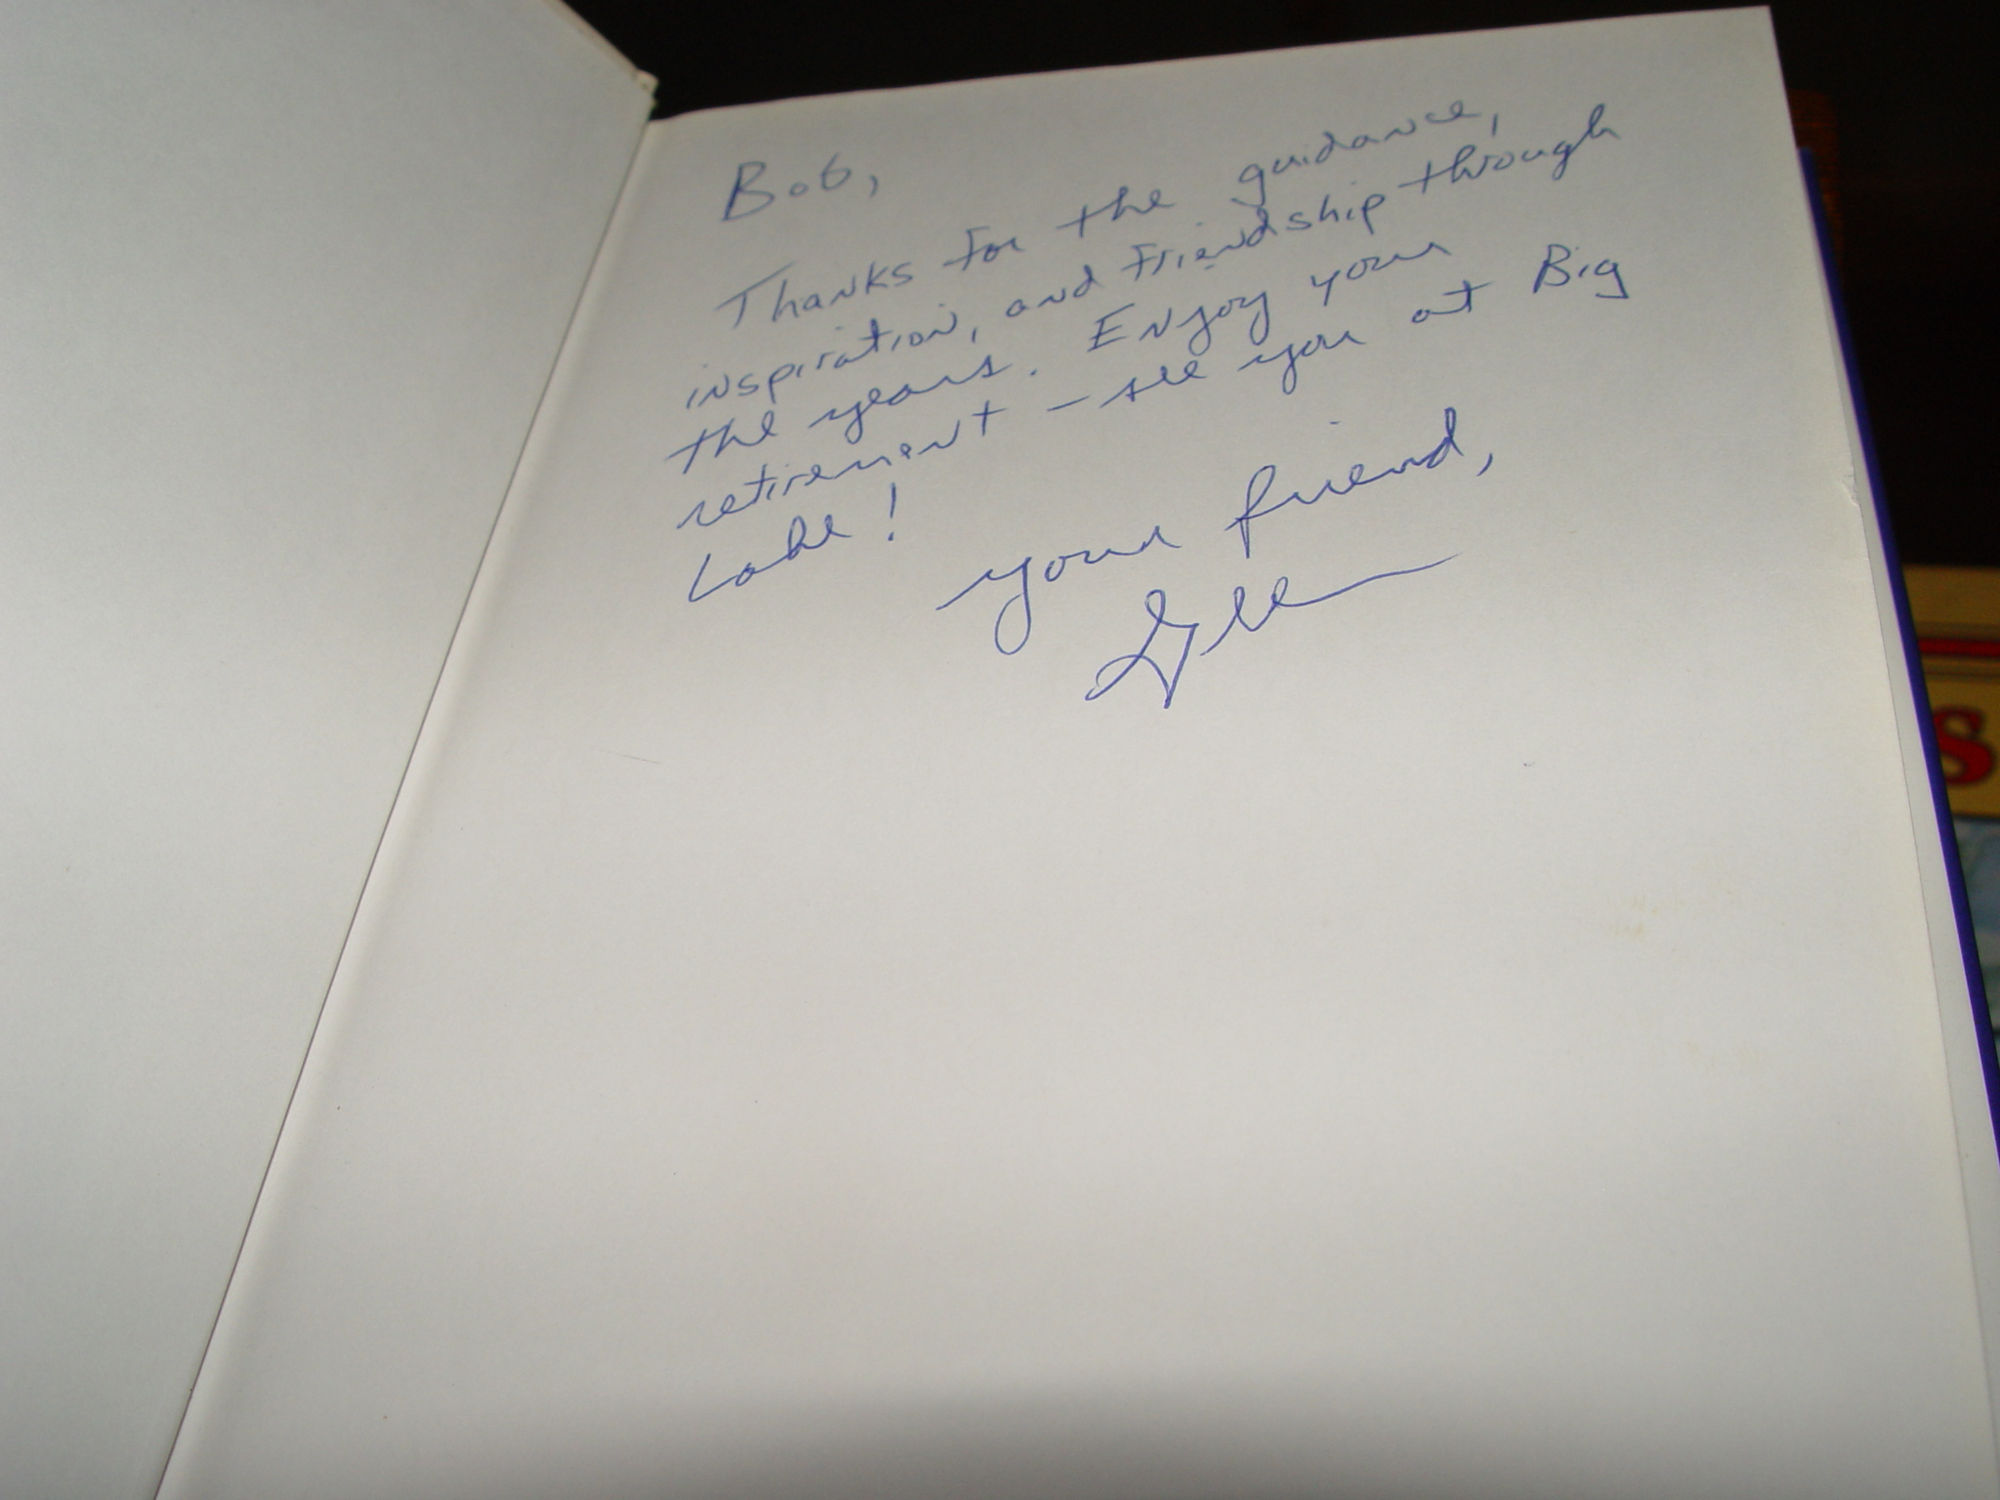 Bob,
Thanks for the guidance,
inspiration, and friendship through
the years. Enjoy your
retirement - see you at Big
Lake!
Your friend,
Glen
S